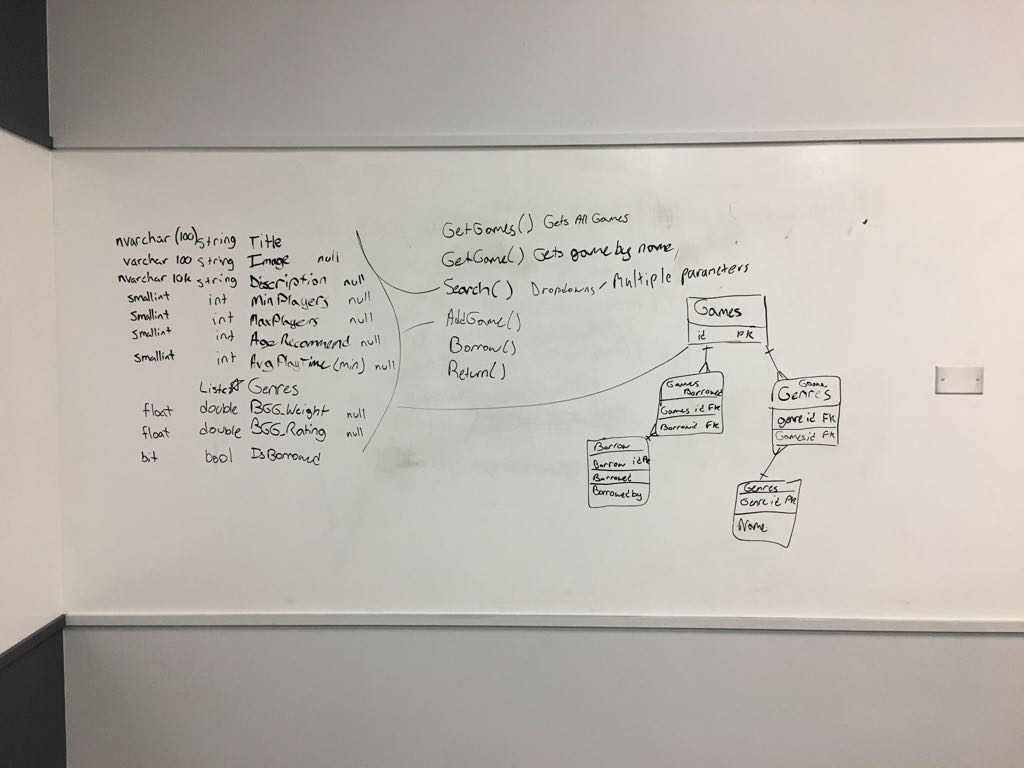 nvarchar (100) string Title
varchar 100 string Image null
nvarchar 10k string Discription null
smallint int MinPlayers null
smallint int MaxPlayers null
smallint int Age Recommend null
smallint int Avg PlayTime (min) null
Genres
float double BGG_Weight null
float double BGG_Rating null
bit bool IsBorrowed
GetGames() Gets All Games
GetGame() Gets game by name,
Search() Dropdowns / Multiple parameters
AddGame()
Borrow()
Return()
Games
id PK
Games
Borrowed
Games id FK
Borrow id FK
Borrow
Borrow id PK
Borrowed
Borrowed by
Game
Genres
genre id FK
Games id FK
Genres
Genre id PK
Name